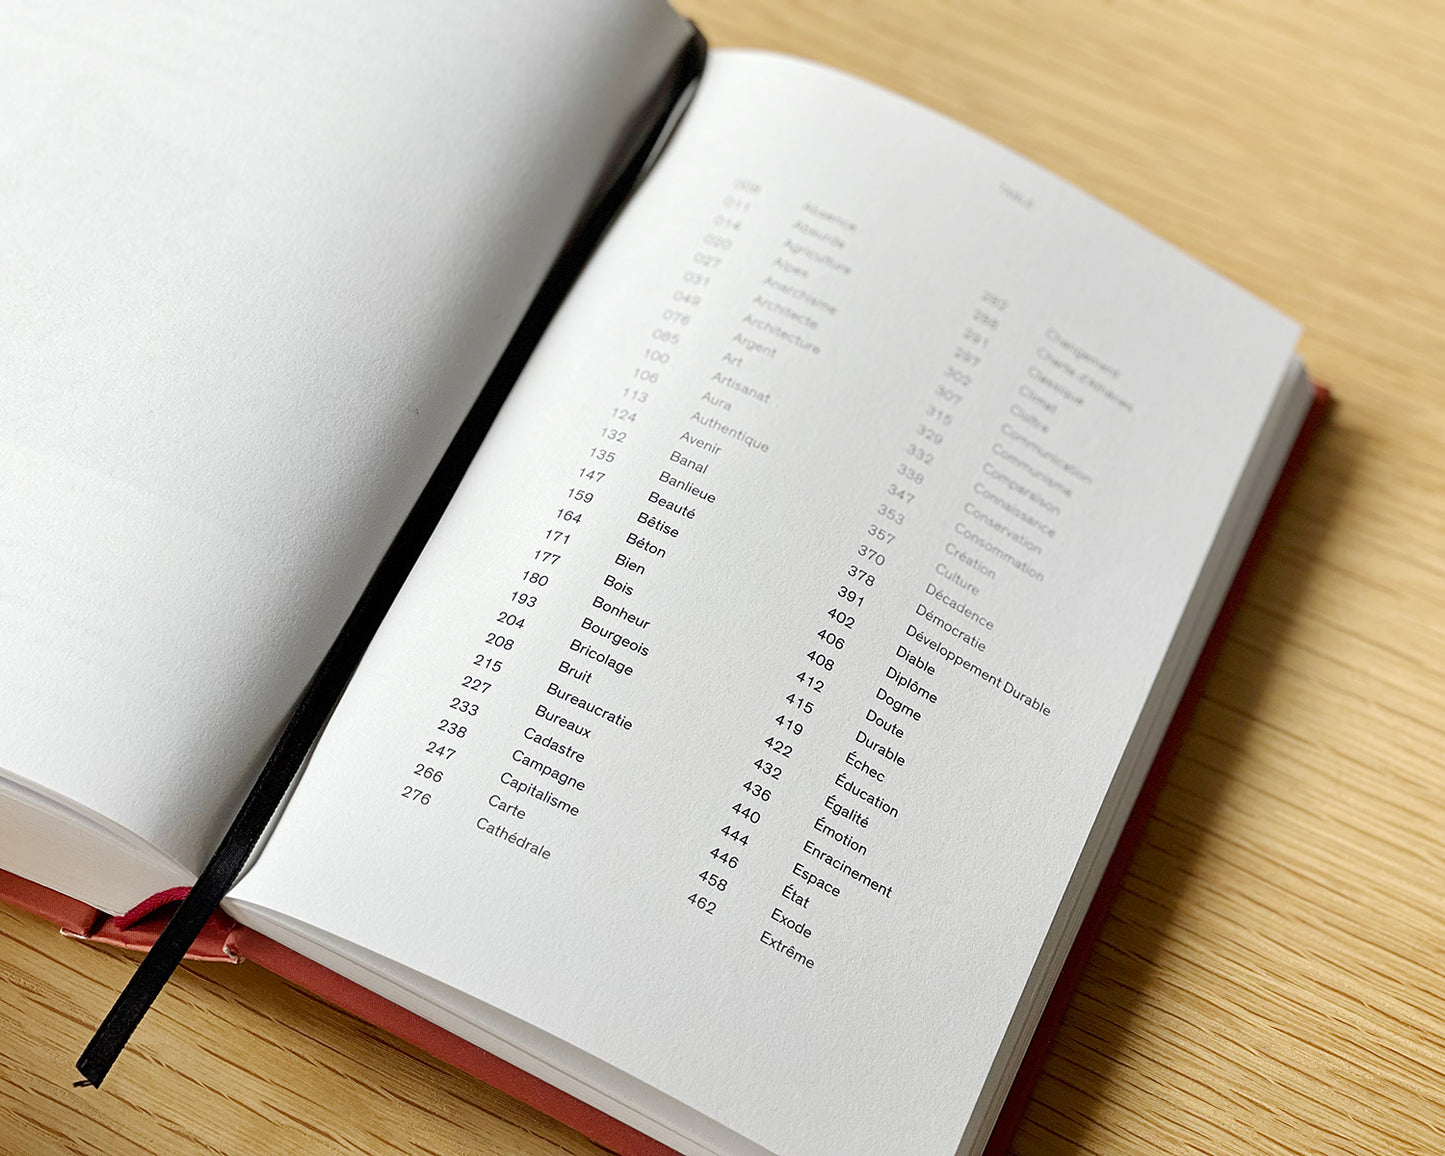 TABLE
008 Absence
011 Absurde
014 Agriculture
020 Alpes
027 Anarchisme
031 Architecte
049 Architecture
076 Argent
085 Art
100 Artisanat
106 Aura
113 Authentique
124 Avenir
132 Banal
135 Banlieue
147 Beauté
159 Bêtise
164 Béton
171 Bien
177 Bois
180 Bonheur
193 Bourgeois
204 Bricolage
208 Bruit
215 Bureaucratie
227 Bureaux
233 Cadastre
238 Campagne
247 Capitalisme
266 Carte
276 Cathédrale
282 Changement
288 Charte d'Athènes
291 Classique
297 Climat
302 Cloître
307 Communication
315 Communisme
329 Comparaison
332 Connaissance
338 Conservation
347 Consommation
353 Création
357 Culture
370 Décadence
378 Démocratie
391 Développement Durable
402 Diable
406 Diplôme
408 Dogme
412 Doute
415 Durable
419 Échec
422 Éducation
432 Égalité
436 Émotion
440 Enracinement
444 Espace
446 État
458 Exode
462 Extrême